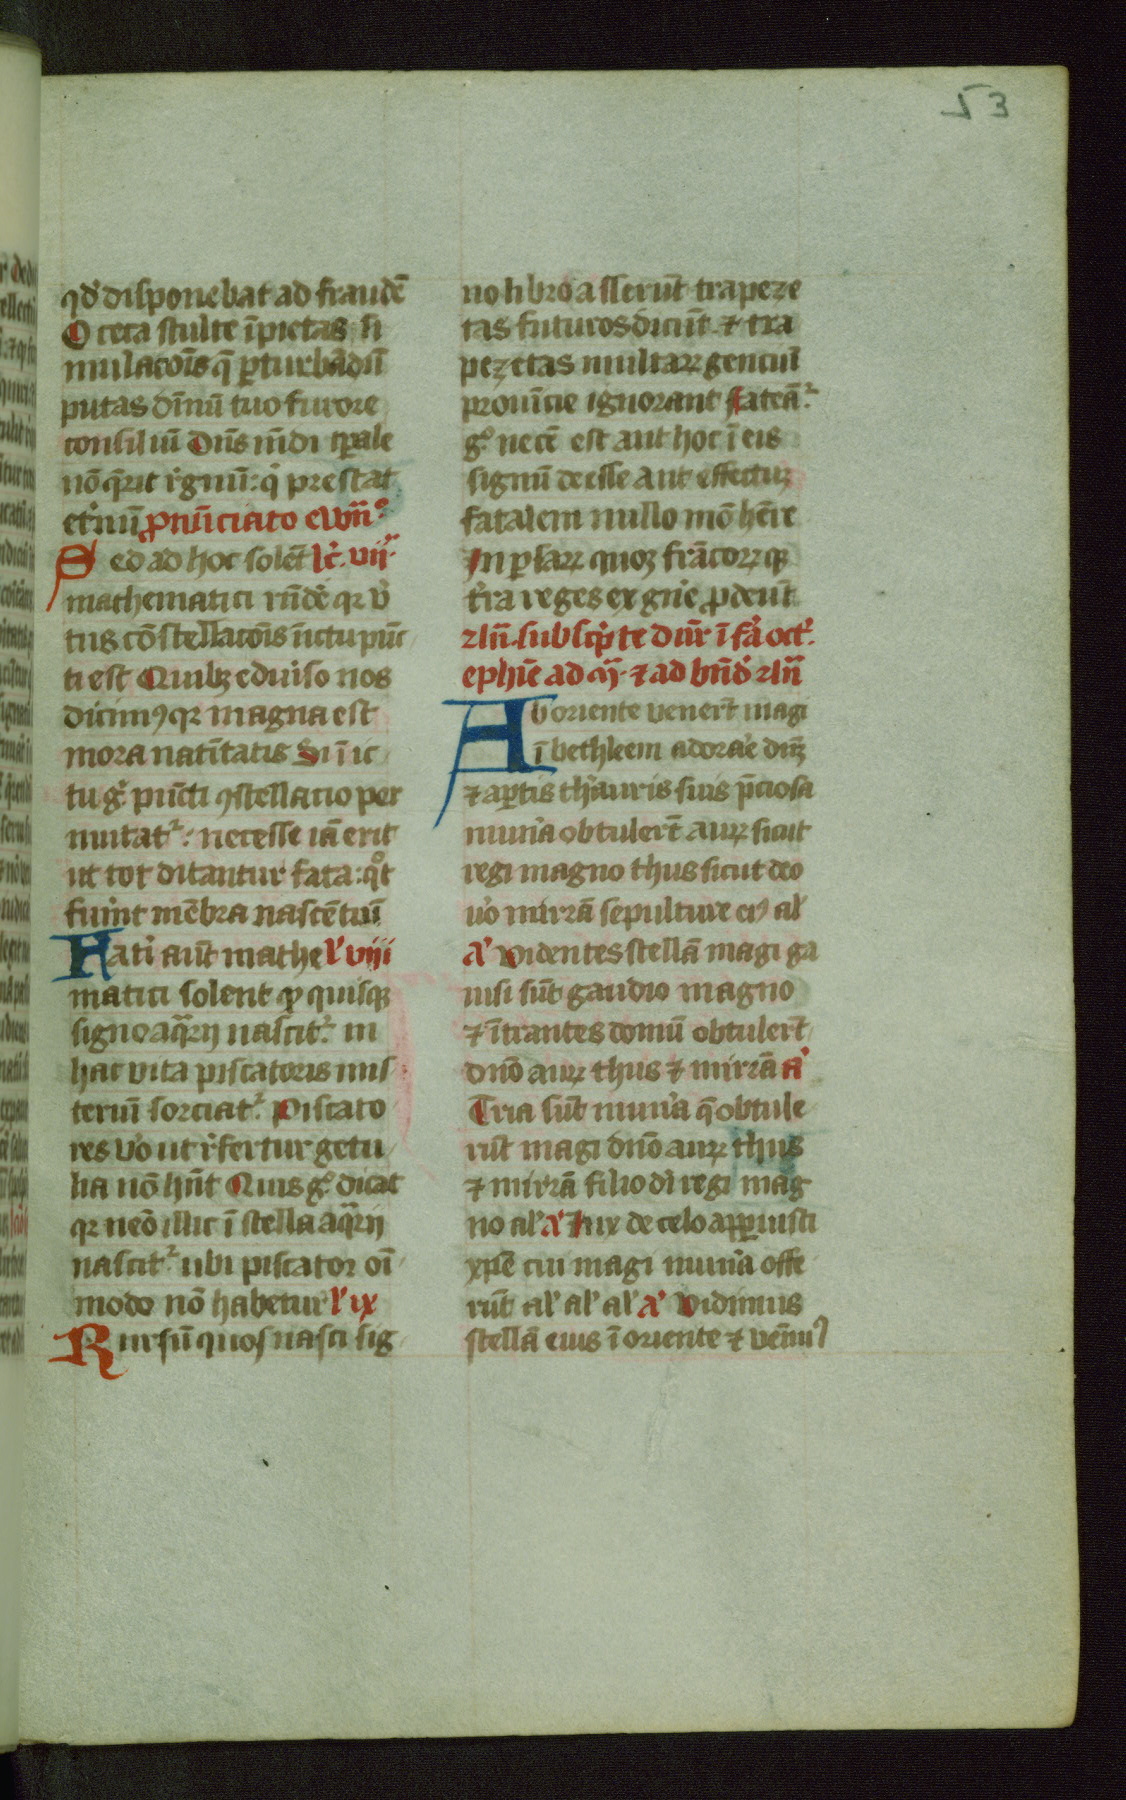 53
qđ disponebat ad fraudē
O ceca stulte īpietas si
mulacōis q̄ ꝑturbādū
putas dīnū tuo furore
consiliū Dn̄s mūdi tꝑale
nō q̄rit rͥgnū: qͥ prestat
etͥnū ꝓnūciato ewn̄º
Sed ad hoc solēt lc̄. vii
mathematici rn̄dē qꝛ vͥ
tus cōstellacōis īictu pūc
ti est Quibꝫ ediuͥso nos
dicimꝰ qꝛ magna est
mora natīitatis Si ī ic
tu gͦ pūcti ꝯstellacio per
mutatᷣ: necesse iā erit
ut tot dicantur fata: qͦt
fuͥint mēbra nascētiū
Fatͥ aut̄ mathe lͥ viii
matici solent ꝙ quisqꝫ
signo aq̄rij nascitᷣ in
hac vita piscatoris mīs
teriū sorciatᷣ Piscato
res vͦo ut rͥfertur getu
lia nō hn̄t Quis gͦ dicat
qꝛ nēo illic ī stella aq̄rij
nascitᷣ ubi piscator oī
modo nō habetur lͥ ix
Rursū quos nasci sig
no libro asserūt trapeze
tas futuros dicūt ⁊ tra
pezetas multaꝝ genciū
prouīcie ignorant fateāᷣ
gͦ necē est aut hoc ī eis
signū deesse aut effectuꝫ
fatalem nullo mō hēre
In ꝑsaꝝ quoꝫ frācoꝝ qꝫ
tͥra reges ex gn̄e ꝓdeūt
Ab oriente venerͥt magi
ī bethleem adorae dn̄ꝫ
⁊ aꝑtis thͥauris suis p̄ciosa
munͥa obtulerͥt auꝝ sicut
regi magno thus sicut deo
vͦo mirrā sepulture eiꝰ al̓
a͛ Videntes stellā magi ga
uisi sūt gaudio magno
⁊ ītrantes domū obtulerͥt
dn̄o auꝝ thus ⁊ mirrā a͛
Tria sūt munͥa q̄ obtule
rūt magi dn̄o auꝝ thus
⁊ mirrā filio di̓ regi mag
no al̓ a͛ Lux de celo apꝑuisti
xp̄e cui magi munͥa offe
rūt al̓ al̓ al̓ a͛ Vidimus
stellā eius ī oriente ⁊ venīmꝰ